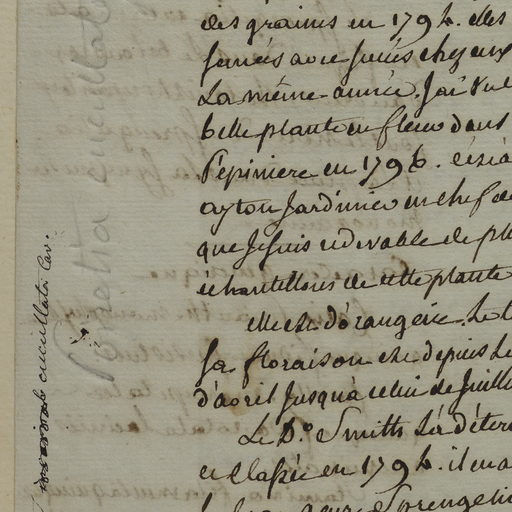 des grains en 1794. elles
semées avec succès chez eux
La même année. J'ai vu
belle plante en fleur dans
Pépiniere en 1796. c'est à
ayton Jardinier en chef de
que Je suis redevable de pl
échantillons de cette plante
elle est d'orangerie. Le t
Sa floraison est depuis le
d'avril Jusqu'à celui de Juill
Le D.r Smitth l'a déter
et classée en 1794. il en a
genre Sprengeli
cucullata Cav.